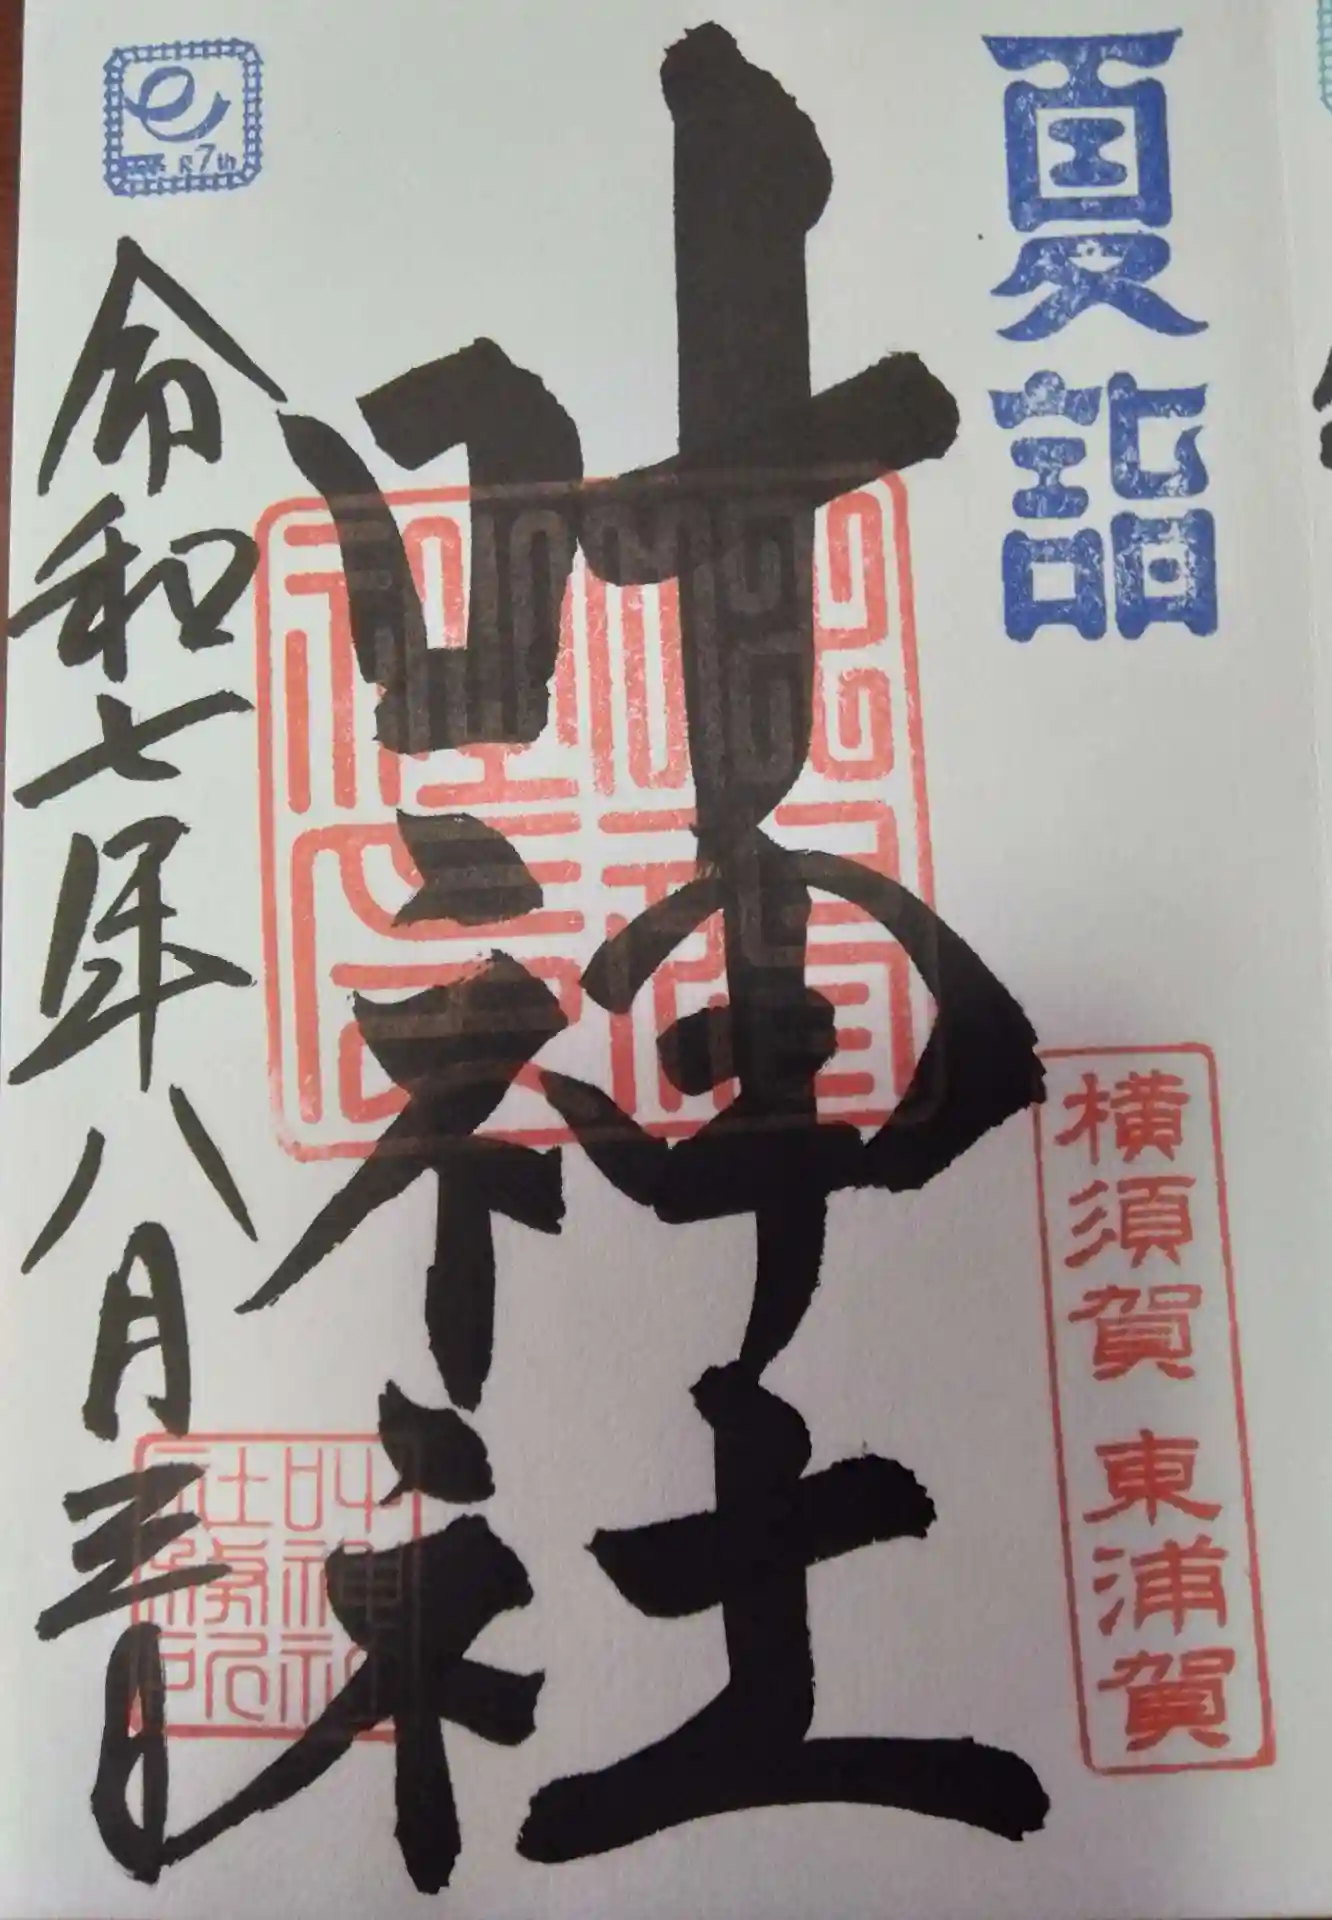 夏詣
横須賀 東浦賀
叶神社
叶神社
社務所
7th
令和七年八月三日